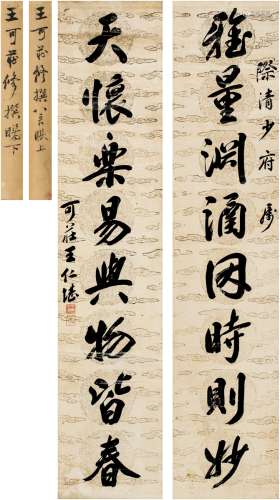 雅量渊涵因時則妙
際清少府屬
天懷樂易與物皆春
可莊王仁堪
王可莊修撰八言聯上
王可莊修撰聯下